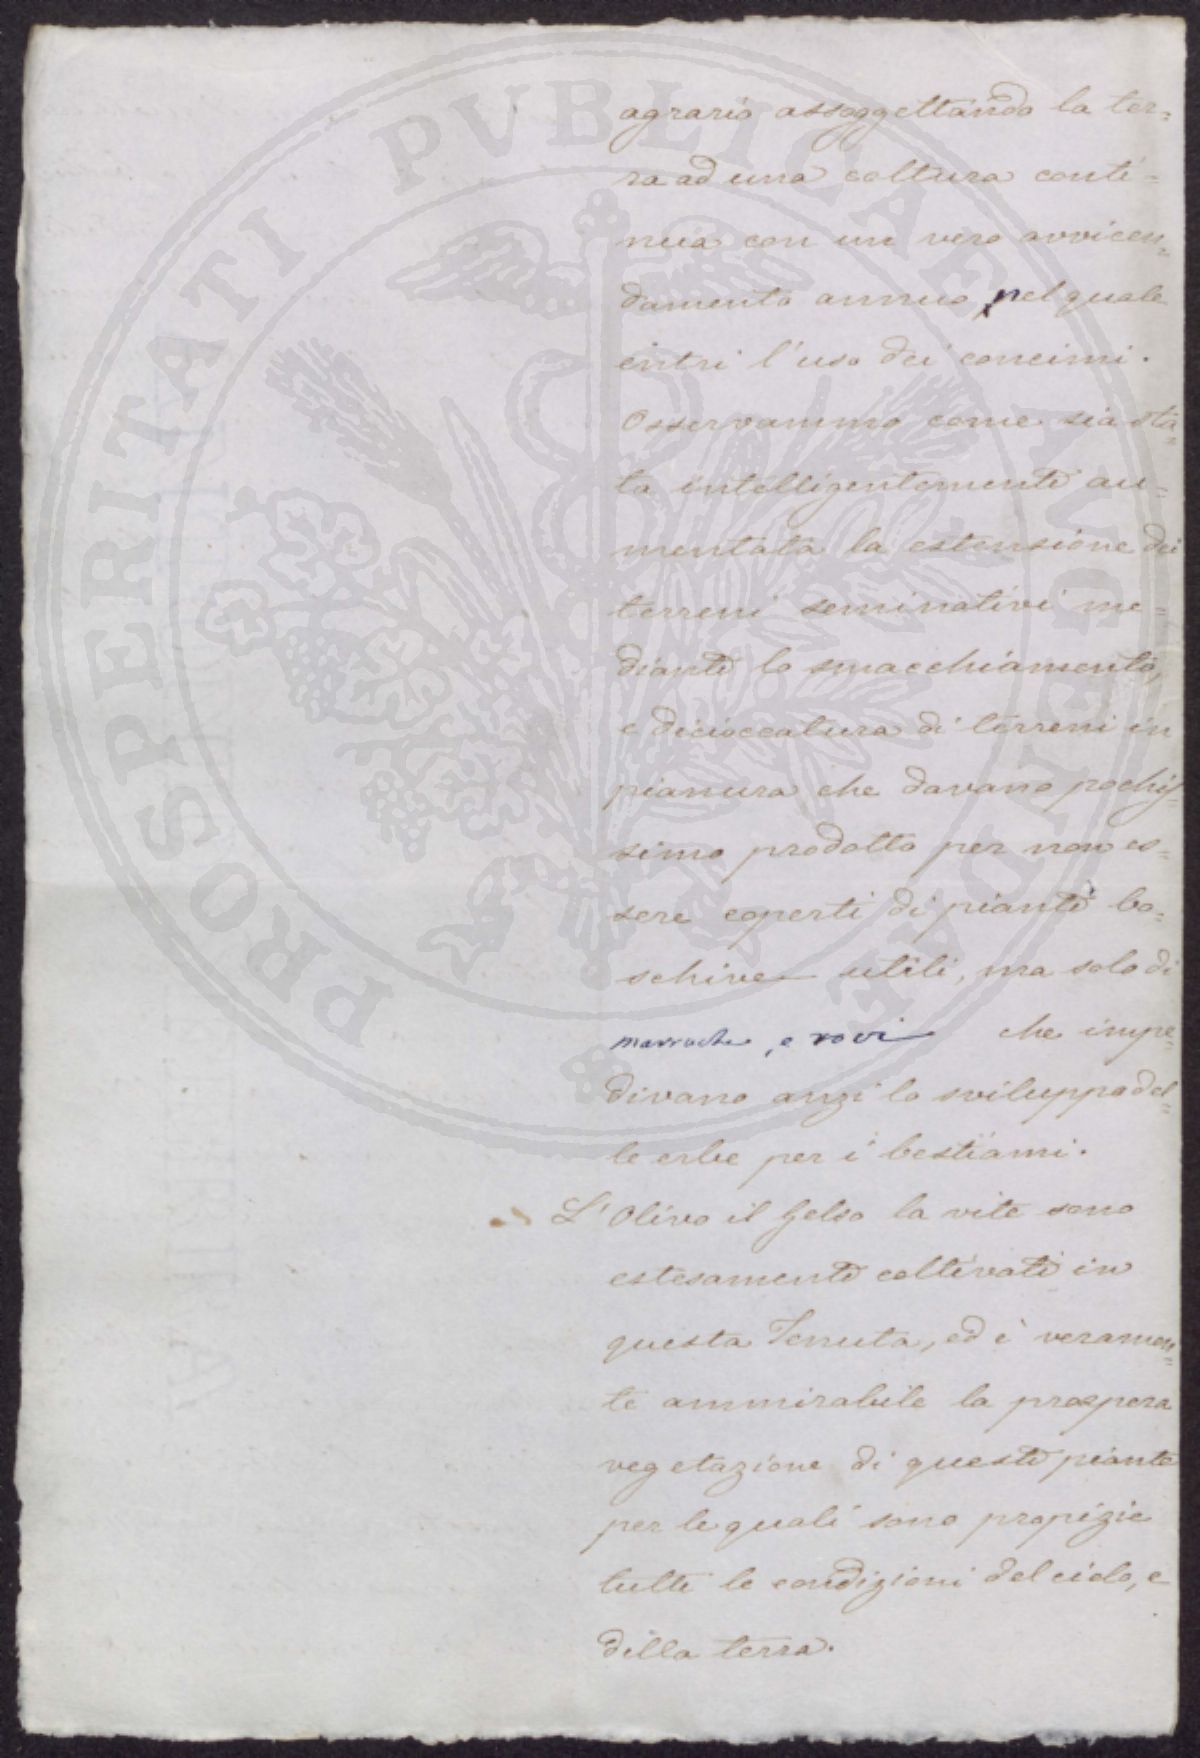 PROSPERITATI PVBLICAE AVGENDAE
agrario assoggettando la ter=
ra ad una coltura conti=
nua con un vero avvicen=
damento annuo, nel quale
entri l'uso dei concimi.
Osservammo come sia sta=
ta intelligentemente au=
mentata la estensione dei
terreni seminativi me=
diante lo smacchiamento,
e dicioccatura di terreni in
pianura che davano pochis=
simo prodotto per non es=
sere coperti di piante bo=
schive utili, ma solo di
marruche, e rovi che impe=
divano anzi lo sviluppo del=
le erbe per i bestiami.
L'Olivo il Gelso la vite sono
estesamente coltivati in
questa Tenuta, ed è veramen=
te ammirabile la prospera
vegetazione di queste piante
per le quali sono propizie
tutte le condizioni del cielo, e
della terra.